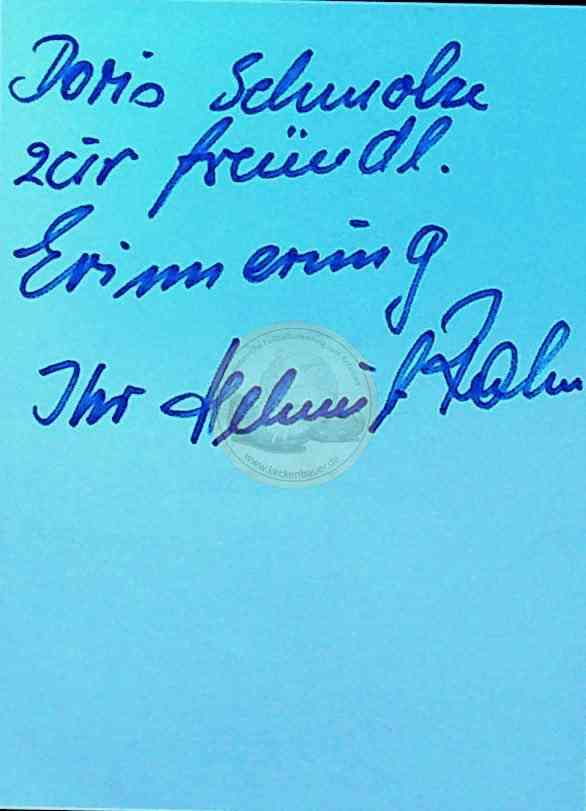 Doris Schmolze
zur freundl.
Erinnerung
Ihr Helmut Rahn
www.keckenbauer.de